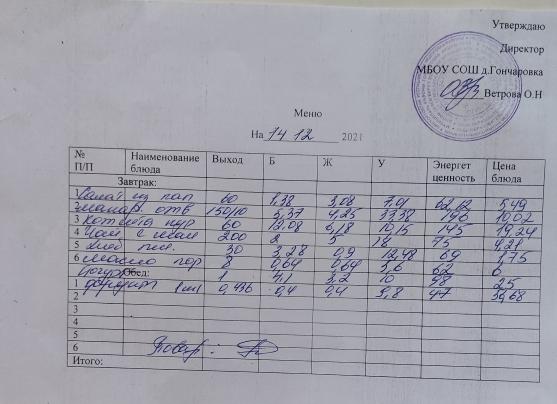 Утверждаю
Директор
МБОУ СОШ д.Гончаровка
Ветрова О.Н
Меню
На 14 12 2021
№ П/П Наименование блюда Выход Б Ж У Энергет ценность Цена блюда
Завтрак:
1 Салат из кап 60 1,38 3,08 7,01 62,12 5,49
2 макар. отв 150/10 5,37 4,25 33,38 196 10,02
3 Котлета кур 60 12,08 6,18 10,15 145 19,24
4 Чай с 200 2 5 18 75 4,21
5 Хлеб пш. 30 3,28 0,9 12,48 69 1,75
6 масло пор 5 0,64 0,64 3,6 62 6
йогурт 1 4,1 3,2 10 98 25
Обед:
1 фрукт 0,436 0,4 0,4 9,8 47 30,68
2
3
4
5
6
Повар:
Итого: